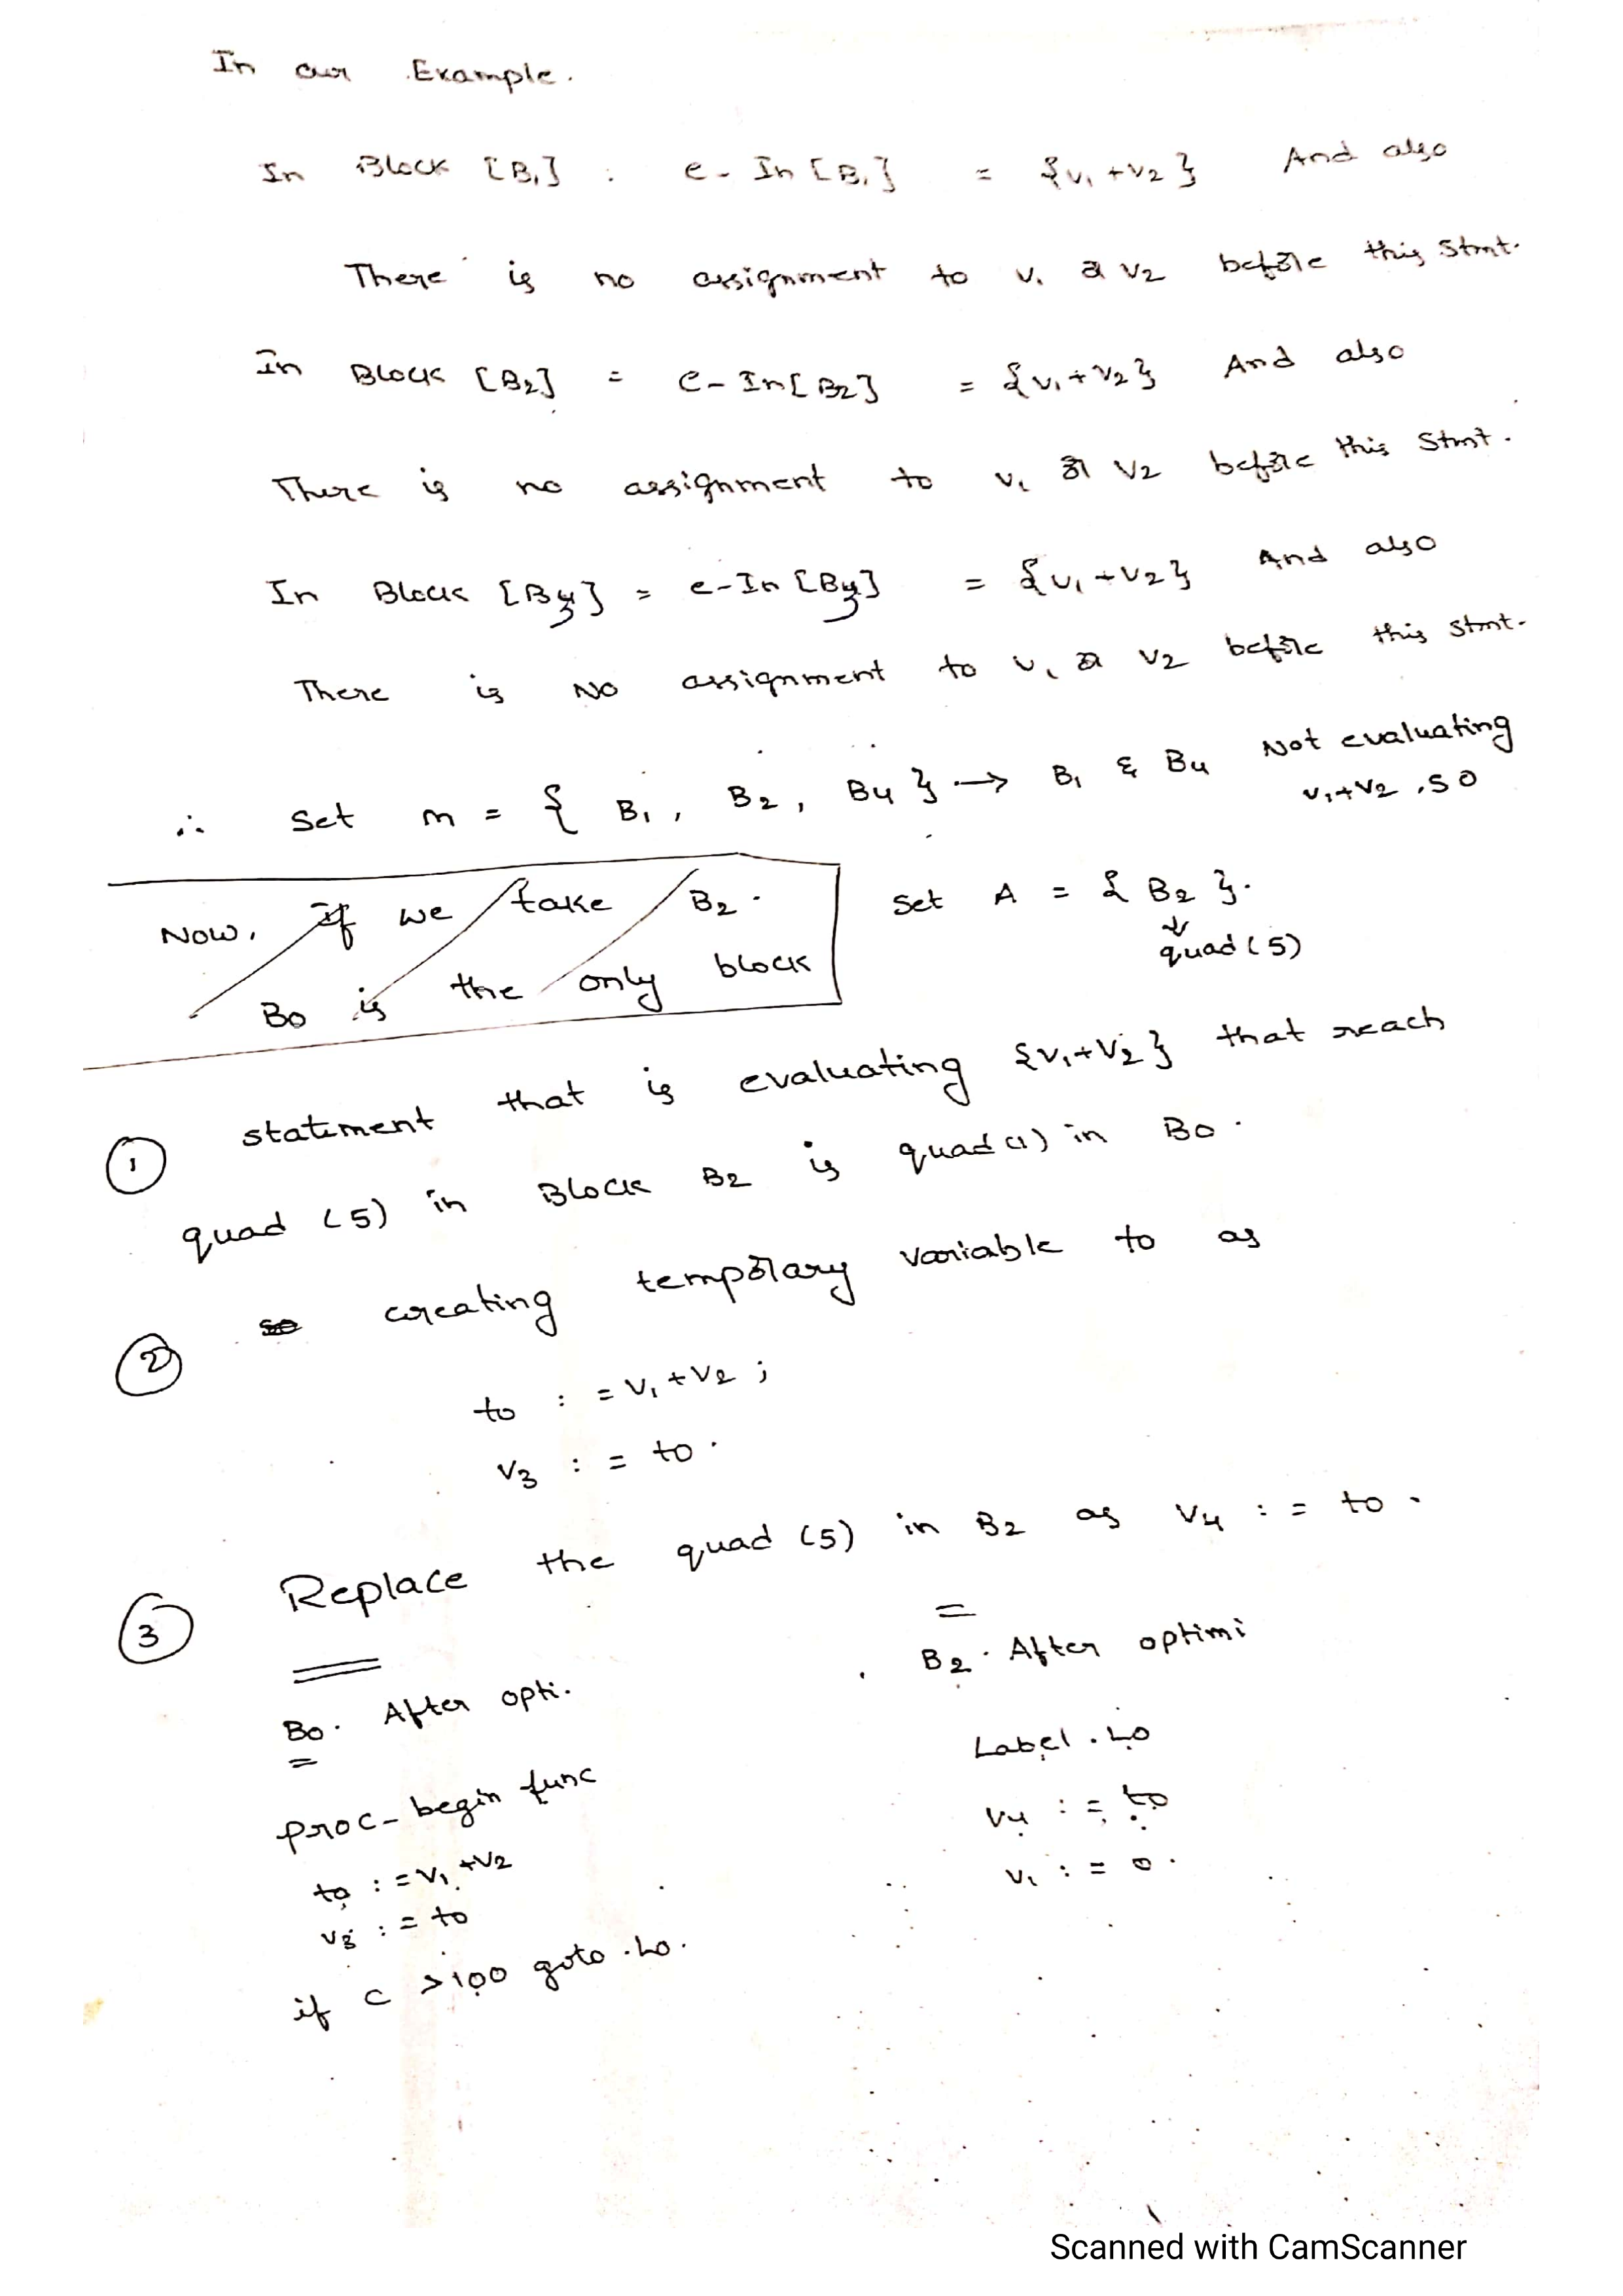 In our Example.
In Block [B1] : e-In [B1] = {v1+v2} And also
There is no assignment to v1 or v2 before this Stmt.
In Block [B2] = e-In[B2] = {v1+v2} And also
There is no assignment to v1 or v2 before this Stmt.
In Block [B3] = e-In [B3] = {v1+v2} And also
There is No assignment to v1 or v2 before this stmt.
∴ Set m = { B1, B2, B4 } → B1 & B4 Not evaluating
v1+v2, so
Now, if we take B2.
Bo is the only block
Set A = { B2 }.
↓
quad (5)
① statement that is evaluating {v1+v2} that reach
quad (5) in Block B2 is quad(1) in Bo.
② so creating temporary variable to as
to := v1+v2;
v3 := to.
③ Replace the quad (5) in B2 as v4 := to.
Bo. After opti.
proc-begin func
to := v1+v2
v3 := to
if c >100 goto .Lo.
B2. After optimi
Label .Lo
v4 := to
v1 := 0.
Scanned with CamScanner